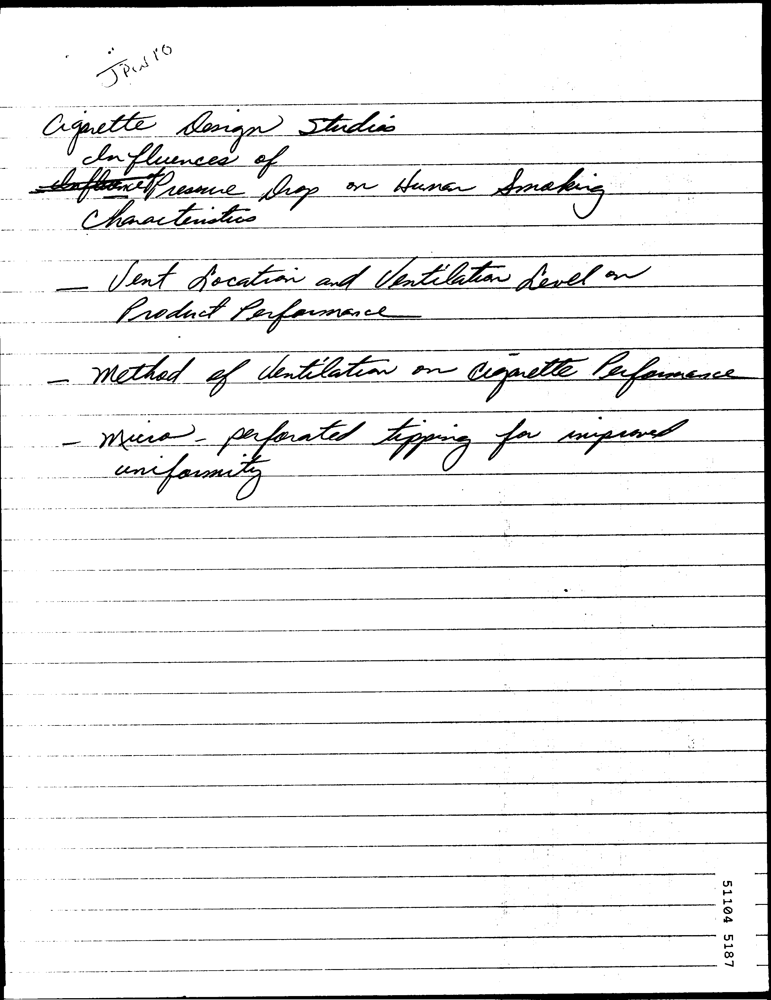 J Pinto
Cigarette Design Studies
Influences of
Pressure Drop on Human Smoking
Characteristics
— Vent Location and Ventilation Level on
Product Performance
— Method of Ventilation on Cigarette Performance
— Micro-perforated tipping for improved
uniformity
51104 5187